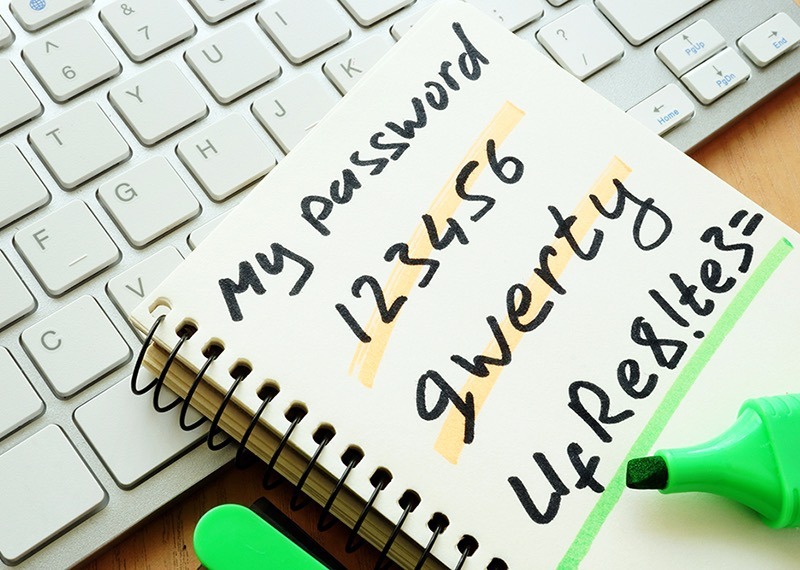 My password
123456
qwerty
UfRe8!te3=
^
6
&
7
U
I
?
/
PgUp
End
PgDn
Home
T
Y
H
J
K
F
G
V
C